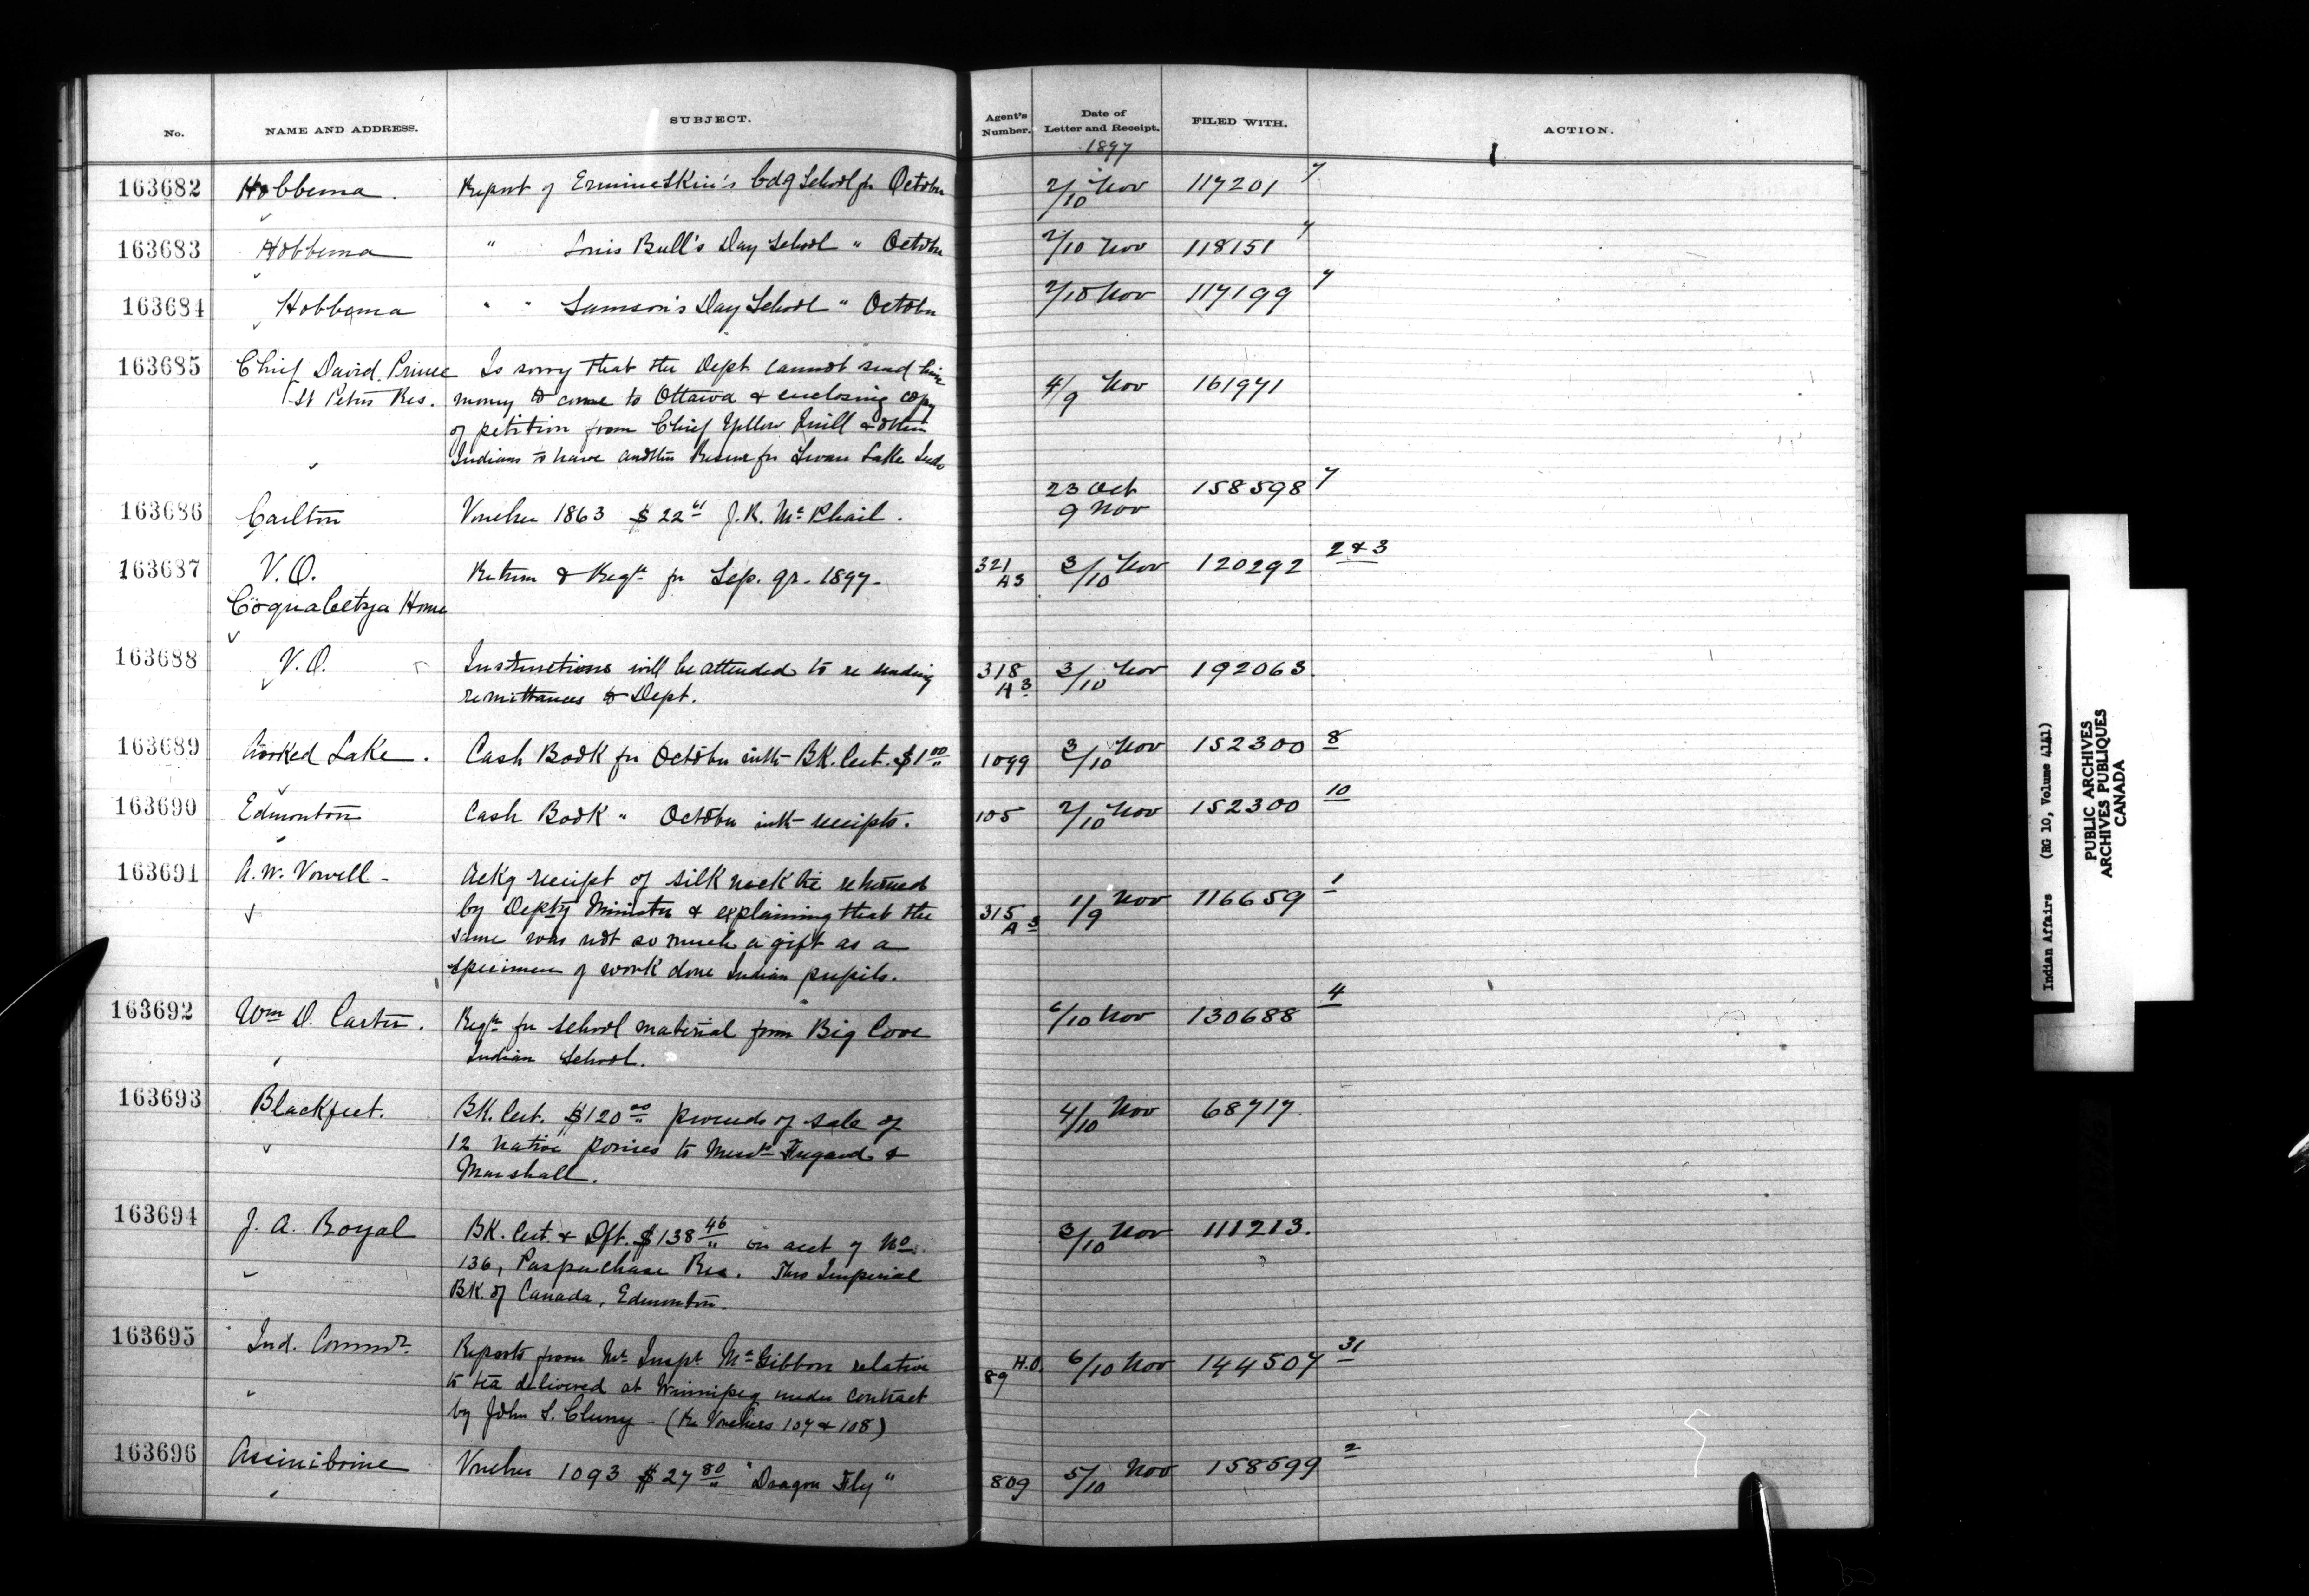 No. NAME AND ADDRESS. SUBJECT. Agent's Number. Date of Letter and Receipt. FILED WITH. ACTION.
1897
163682 Hobbema. Report of Ermineskin's bdg School for October 2/10 Nov 117201 7
163683 Hobbema " Louis Bull's Day School " October 2/10 Nov 118151 7
163684 Hobbema " " Samson's Day School " October 2/10 Nov 117199 7
163685 Chief David Prince Is sorry that the Dept cannot send him 4/9 Nov 161971
St Peters Res. money to come to Ottawa & enclosing copy
of petition from Chief Yellow Quill & other
Indians to have another Reserve for Swan Lake Inds
163686 Carlton Voucher 1863 $22 61 J.R. McPhail. 23 Oct 158598 7
9 Nov
163687 V.O. Return & Regr for Sep. qr. 1897. 321 A3 3/10 Nov 120292 2 & 3
Coqualeetza Home
163688 V.O. Instructions will be attended to re sending 318 A3 3/10 Nov 192063.
remittances to Dept.
163689 Crooked Lake. Cash Book for October with BK. Cert. $1 00 1099 3/10 Nov 152300 8
163690 Edmonton Cash Book " October with receipts. 105 2/10 Nov 152300 10
163691 A.W. Vowell - Ackg receipt of silk neck tie returned 315 A3 1/9 Nov 116659 1
by Depty Minister & explaining that the
same was not so much a gift as a
specimen of work done Indian pupils.
163692 Wm D. Carter. Regr for school material from Big Cove 6/10 Nov 130688 4
Indian School.
163693 Blackfeet. BK. Cert. $120 00 proceeds of sale of 4/10 Nov 68717
12 native ponies to Messrs &
Marshall.
163694 J. A. Royal BK. Cert. & Dft. $138 46 on acct of No. 3/10 Nov 111213.
136, Paspaschase Res. Thro Imperial
BK. of Canada, Edmonton.
163695 Ind. Commr. Reports from Mr Inspr McGibbon relative 89 H.O. 6/10 Nov 144507 31
to tea delivered at Winnipeg under contract
by John S. Cluny - (Re Vouchers 107 & 108)
163696 Assiniboine Voucher 1093 $27 80 "Dragon Fly" 809 5/10 Nov 158599 2
Indian Affairs (RG 10, Volume 4141)
PUBLIC ARCHIVES
ARCHIVES PUBLIQUES
CANADA